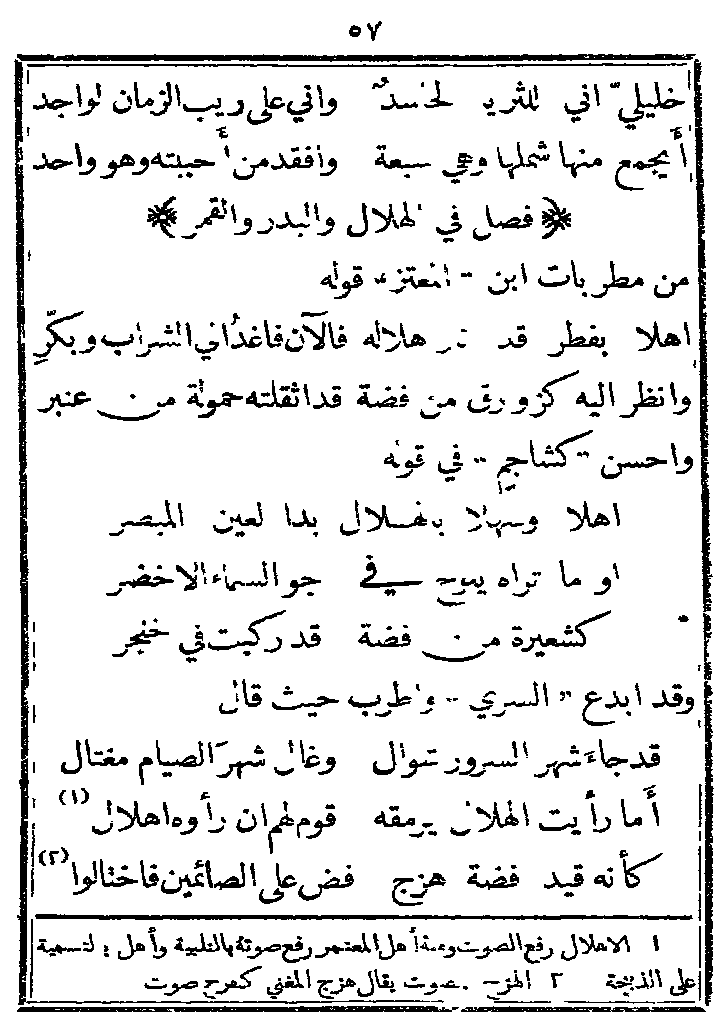 ٥٧
خليلي اني للثريا لحاسد واني على ريب الزمان لواجد
أيجمع منها شملها وهي سبعة وافقد من أحببته وهو واحد
﴿ فصل في الهلال والبدر والقمر ﴾
من مطربات ابن المعتز، قوله
اهلا بفطر قد هلاله فالآن فاغد الى الشراب وبكّرِ
وانظر اليه كزورق من فضة قد اثقلته حمولة من عنبر
واحسن "كشاجم" في قوله
اهلا وسهلا بالهلال بدا لعين المبصر
او ما تراه يلوح في جو السماء الاخضر
كشعيرة من فضة قد ركبت في خنجر
وقد ابدع "السري" واطرب حيث قال
قد جاءَ شهر السرور شوال وغال شهرَ الصيام مغتال
أما رأيت الهلال يرمقه قوم لهم ان رأوه اهلال (١)
كأنه قيد فضة هزج فض على الصائمين فاختالوا (٢)
١ الاهلال رفع الصوت ومنه أهل المعتمر رفع صوته بالتلبية وأهل : لتسمية
على الذبيحة ٢ الهزج صوت يقال هزج المغني كفرح صوت